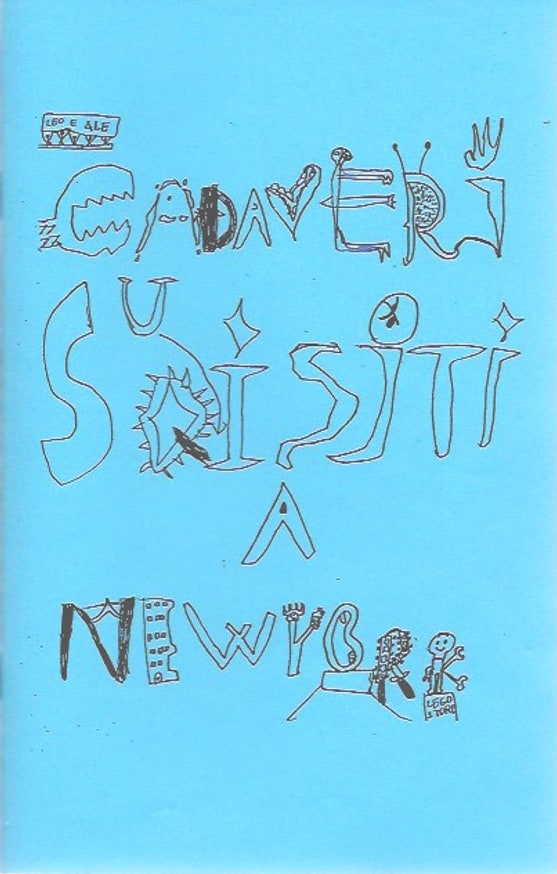 LEO E ALE
CADAVERI
SQUISITI
A
NEW YORK
LEGO
STORE